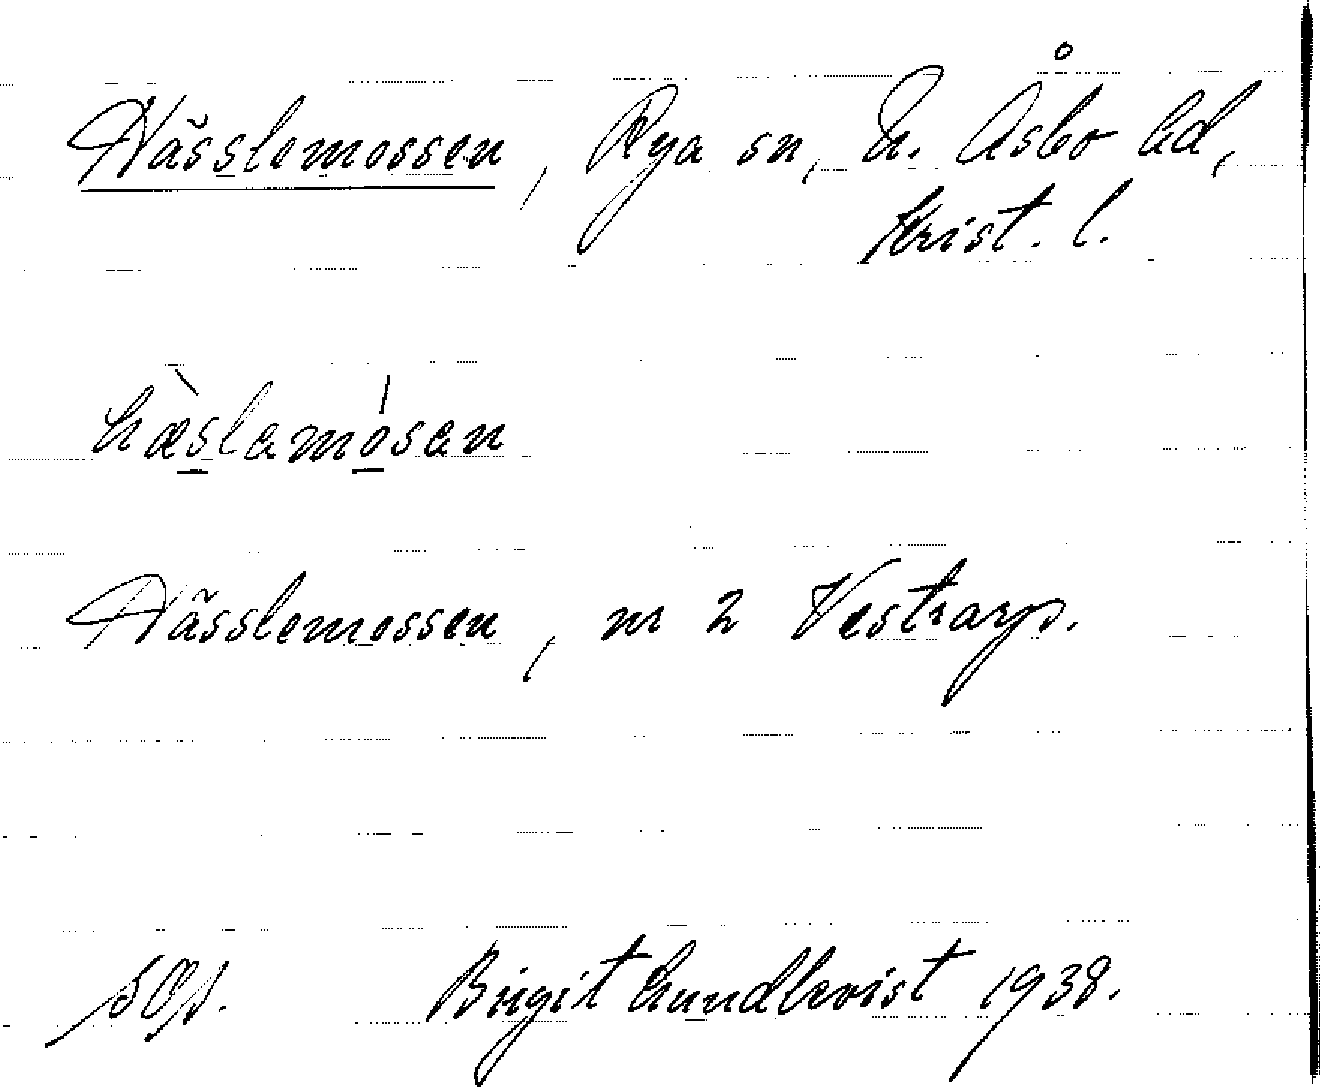 Hässlemossen, Rya sn, N. Åsbo hd,
Krist. l.
hæ̀slamósan
Hässlemossen, nr 2 Vestrarp.
Birgit Lundkvist 1938.